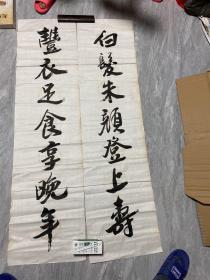 白髮朱顏登上壽
豐衣足食享晚年